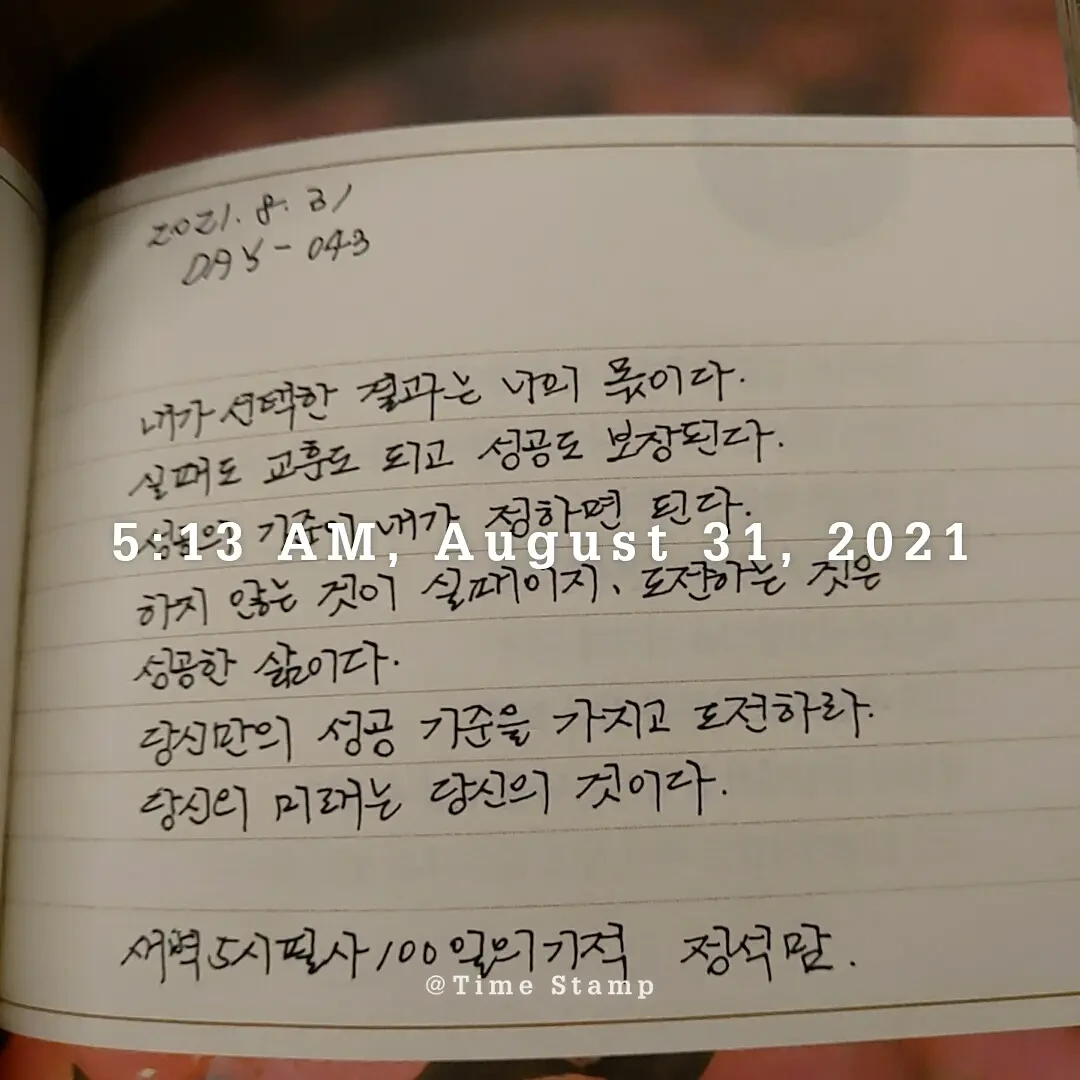 2021. 8. 31
DAY - 043
내가 선택한 결과는 나의 몫이다.
실패도 교훈도 되고 성공도 보장된다.
기준이 내가 정하면 된다.
5:13 AM, August 31, 2021
하지 않는 것이 실패이지, 도전하는 것은
성공한 삶이다.
당신만의 성공 기준을 가지고 도전하라.
당신의 미래는 당신의 것이다.
새벽5시필사100일의기적 정석맘.
@Time Stamp